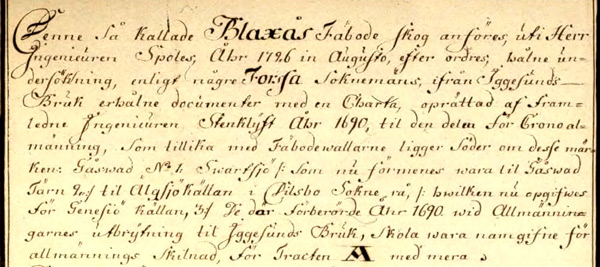 Denne så kallade Blaxås Fäbode skog anföres, uti Herr
Ingenieuren Spoles, Åhr 1726 in Augusto, efter ordres, hålne un-
dersökning, enligt någre Forsa Soknemäns, ifrån Iggesunds
Bruk erhålne documenter med en Charta, oprättad af fram-
ledne Ingenieuren Stenklyft Åhr 1690, til den delen för Crono al-
männing, som tillika med Fäbodewallarne ligger Söder om desse mär-
ken: Gåswad No 1. Swartsjö /: som nu förmenes wara til Gåswad
Tärn 2:o/ til Älgsjökällan i Bilsbo Sokne rå, /: hwilken nu opgifwes
för Genesjö källan, 3:/ De där förberörde Åhr 1690 wid Allmännin-
garnes utbrytning til Iggesunds Bruk, skola wara namgifne för
allmännings skilnad, för Tracten A med mera